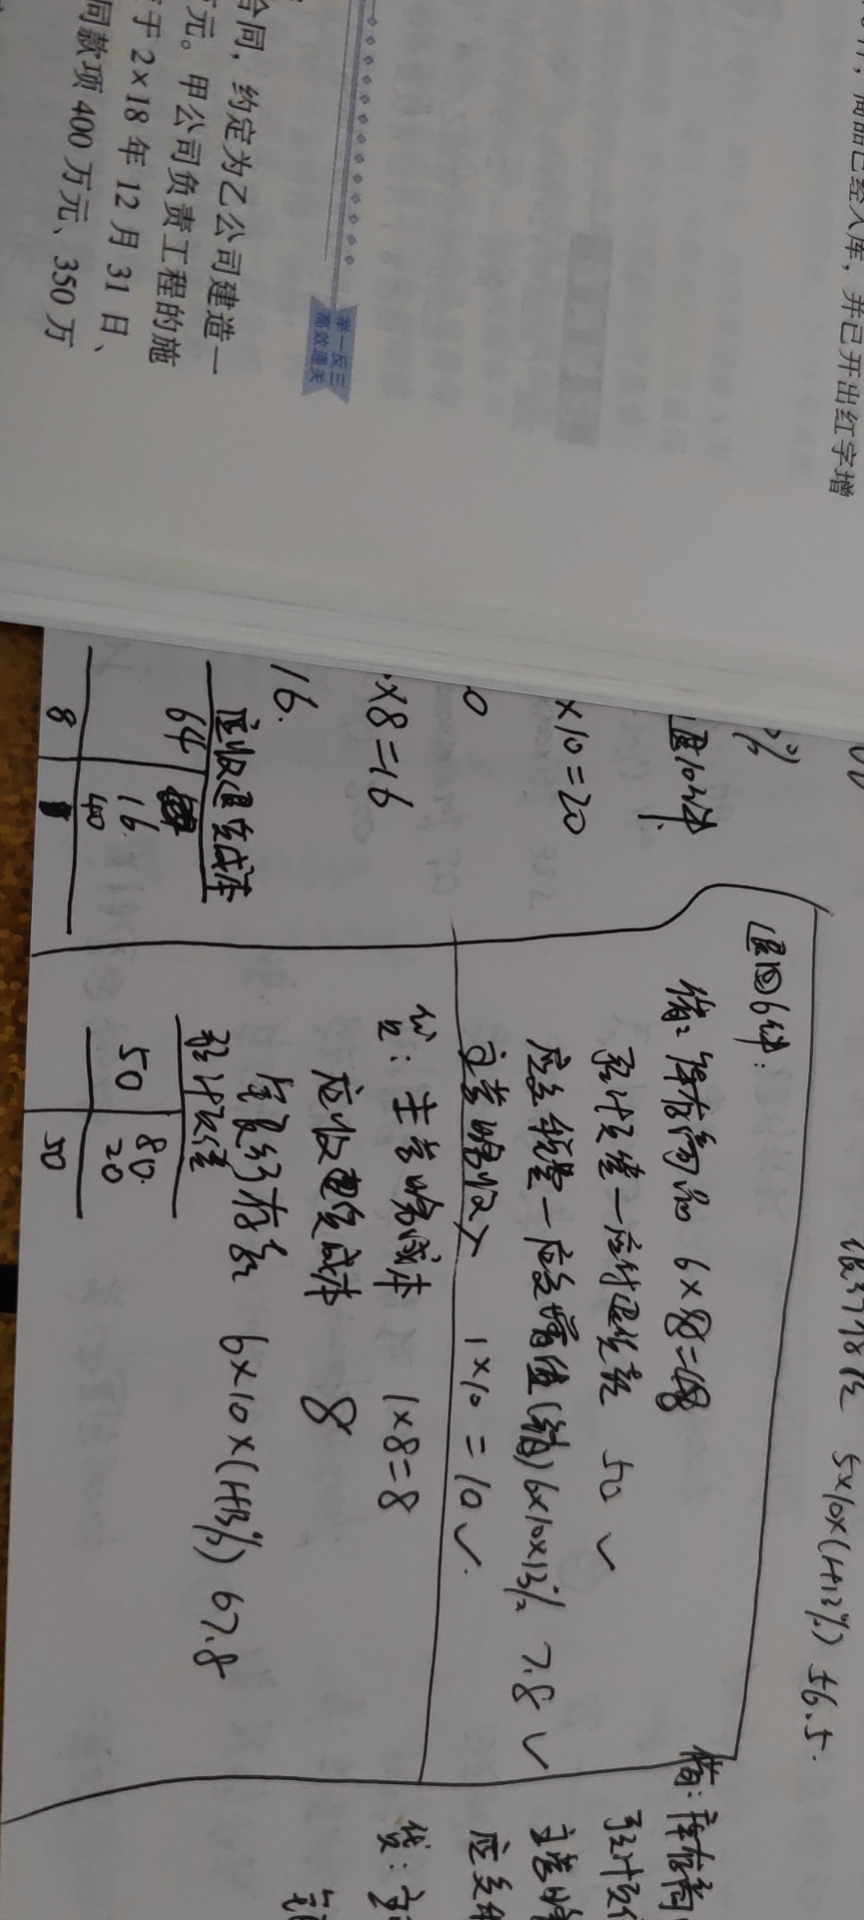 商品已经入库，并已开出红字增
举一反三
高效通关
合同，约定为乙公司建造一
元。甲公司负责工程的施
于 2×18 年 12 月 31 日、
同款项 400 万元、350 万
%
退10件
×10=20
0
×8=16
16.
应收退货成本
64
16.
40
8
5×10×(1+13%) 56.5.
退回6件:
借: 库存商品 6×8=48
预计负债—应付退货款 50 ✓
应交税费—应交增值(销) 6×10×13% 7.8 ✓
主营业务收入 1×10=10 ✓.
贷: 主营业务成本 1×8=8
应收退货成本 8
银行存款 6×10×(1+13%) 67.8
预计负债
80.
50 20
50
借: 库存商
预计负
主营
应交
贷: